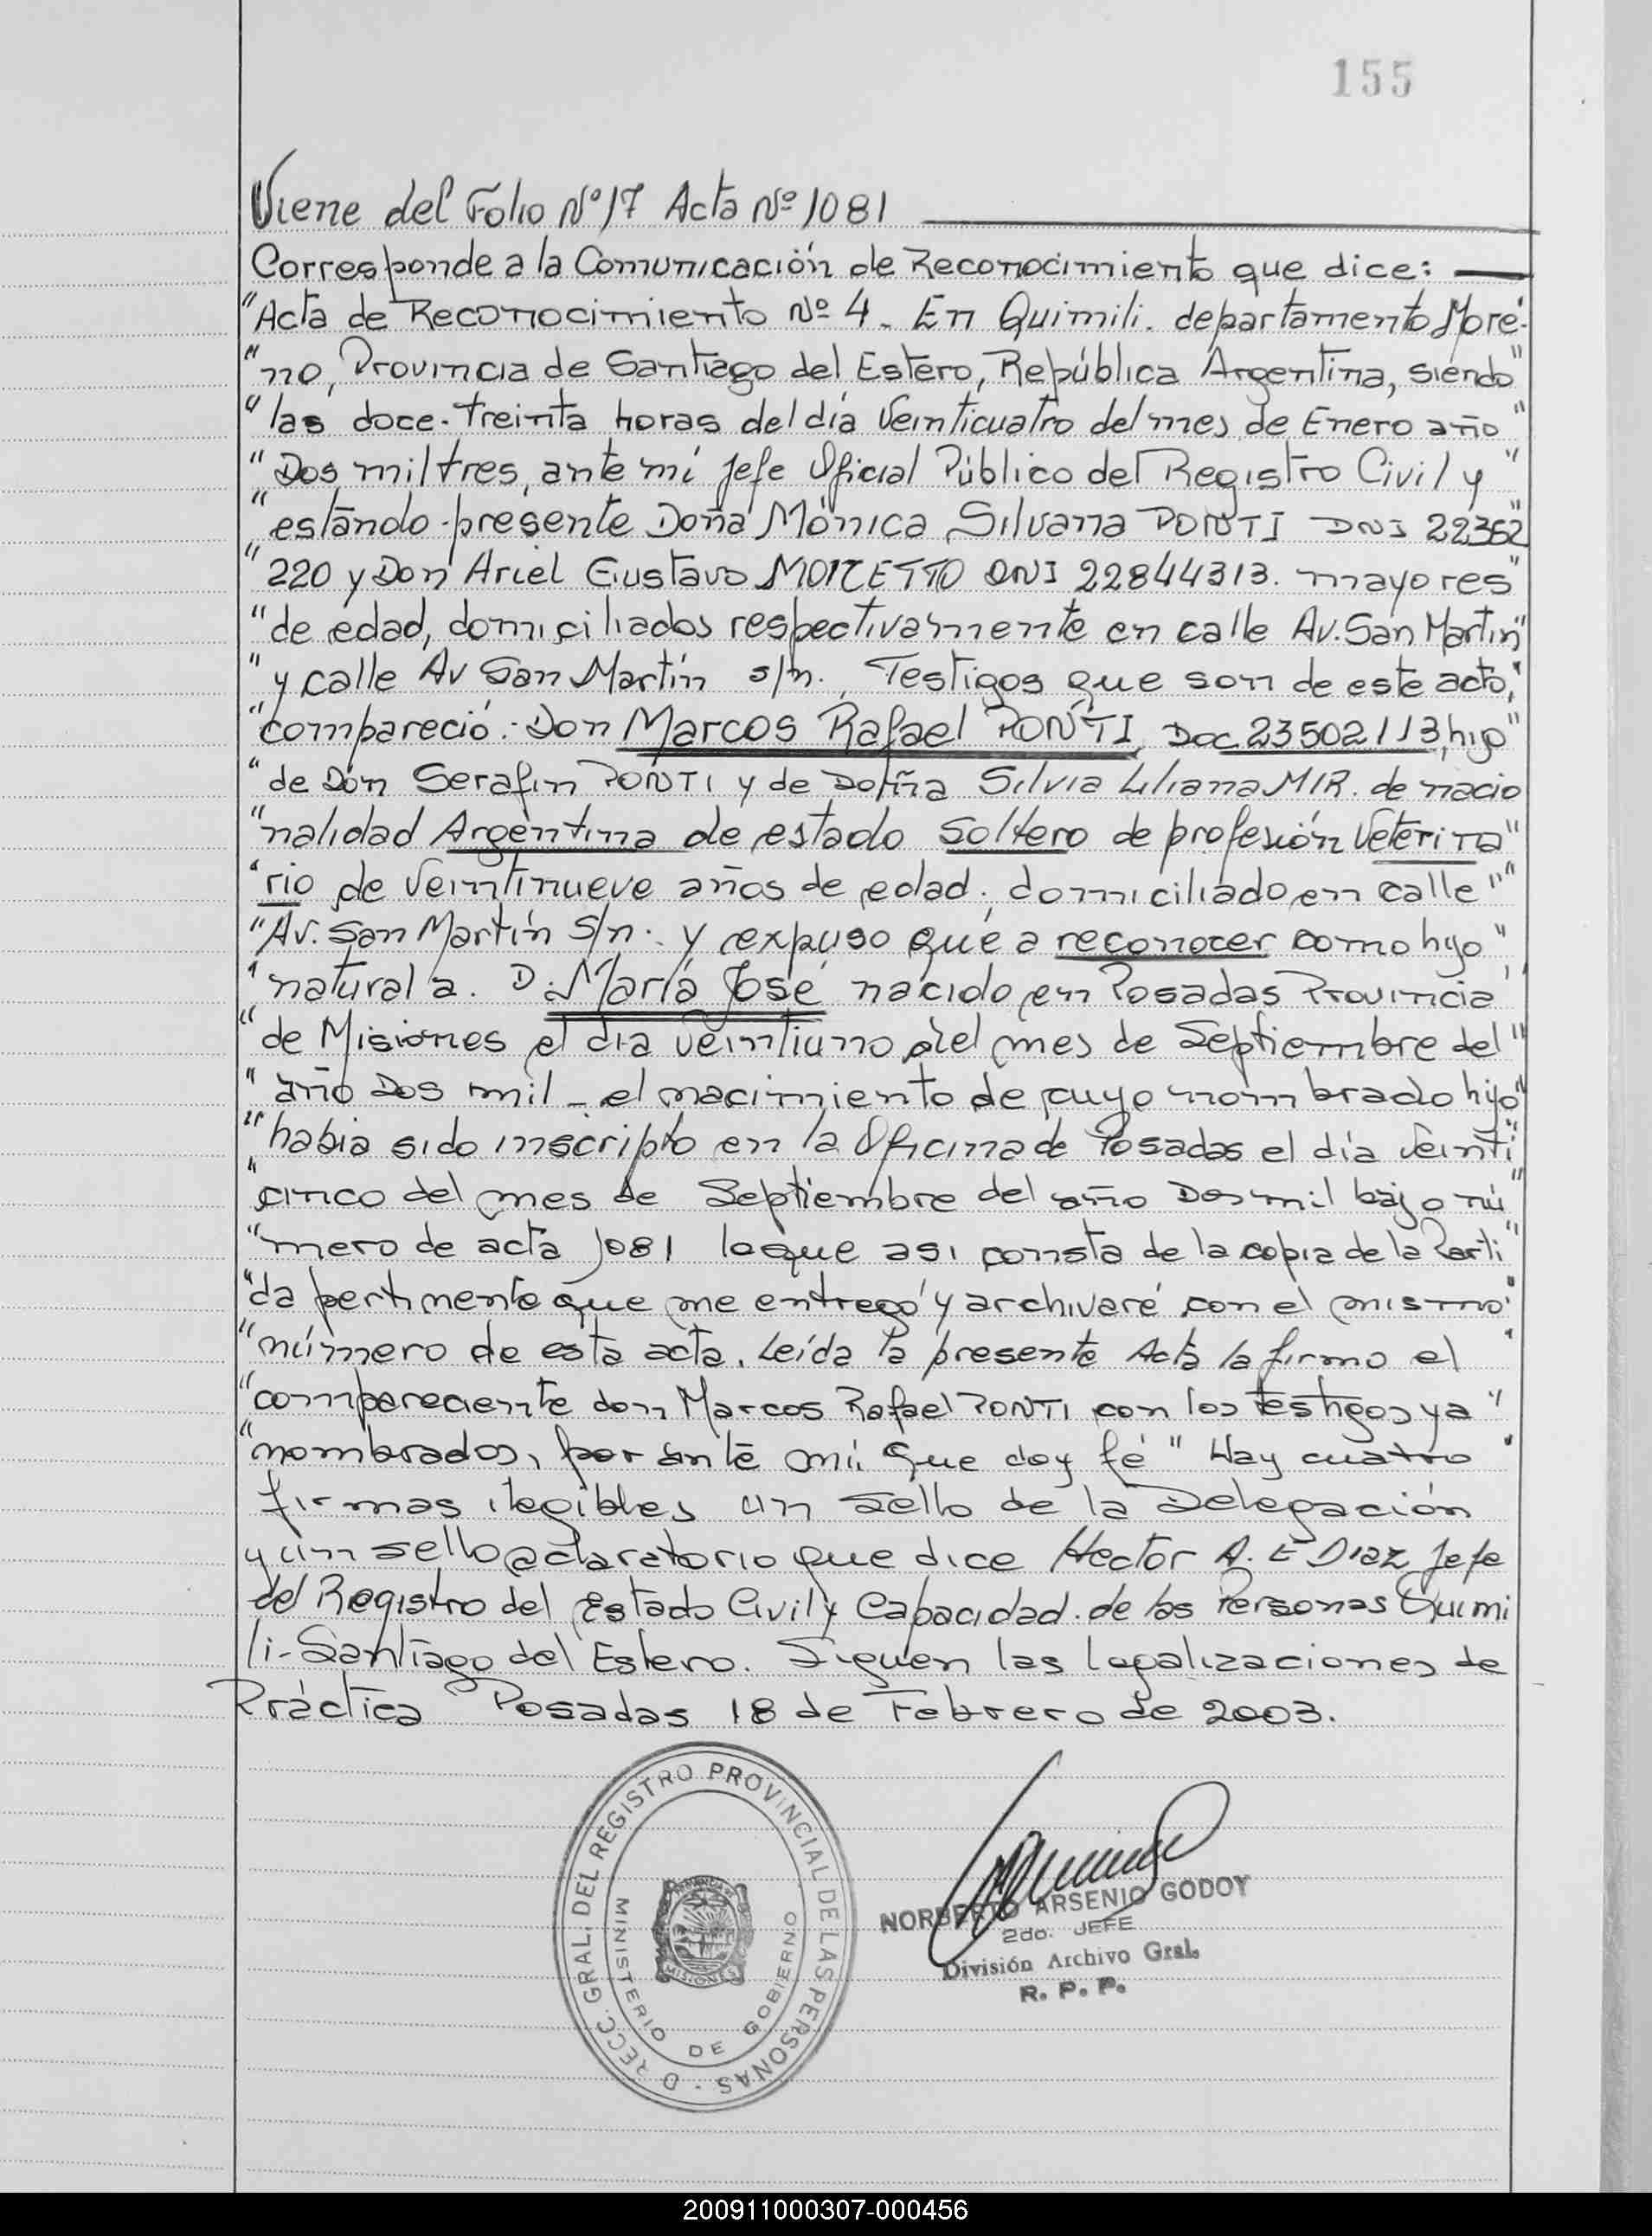 155
Viene del Folio Nº 17 Acta Nº 1081
Corresponde a la Comunicación de Reconocimiento que dice:
"Acta de Reconocimiento Nº 4. En Quimili. departamento More-
"no, Provincia de Santiago del Estero, República Argentina, siendo"
"las doce-treinta horas del día Veinticuatro del mes de Enero año"
"Dos mil tres, ante mí Jefe Oficial Público del Registro Civil y"
"estando presente Doña Mónica Silvana PONTI DNI 22362"
"220 y Don Ariel Gustavo MORETTO DNI 22844313. mayores"
"de edad, domiciliados respectivamente en calle Av. San Martin"
"y calle Av San Martín s/n., Testigos que son de este acto,"
"compareció: Don Marcos Rafael PONTI, Doc 23502113, hijo"
"de Don Serafin PONTI y de Doña Silvia Liliana MIR. de nacio
"nalidad Argentina de estado Soltero de profesión Veterina"
"rio de Veintinueve años de edad, domiciliado en calle""
"Av. San Martín S/n. y expuso que a reconocer como hijo"
"natural a. D: María José nacido en Posadas Provincia"
"de Misiones el dia veintiuno del mes de Septiembre del"
"año Dos mil - el nacimiento de cuyo nombrado hijo"
"habia sido inscripto en la Oficina de Posadas el día Veinti"
"cinco del mes de Septiembre del año Dos mil bajo nú"
"mero de acta 1081 lo que asi consta de la copia de la Parti"
"da pertinente que me entregó y archivaré con el mismo"
"número de esta acta. Leída la presente Acta la firmo el "
"compareciente don Marcos Rafael PONTI con los testigos ya"
"nombrados, por ante mí que doy fé" Hay cuatro "
firmas ilegibles un sello de la Delegación
y un sello aclaratorio que dice Hector A. E Diaz Jefe
del Registro del Estado Civil y Capacidad de las Personas Quimi
li- Santiago del Estero. Siguen las legalizaciones de
Práctica Posadas 18 de Febrero de 2003.
DIRECC. GRAL. DEL REGISTRO PROVINCIAL DE LAS PERSONAS
MINISTERIO DE GOBIERNO
MISIONES
NORBERTO ARSENIO GODOY
2do. JEFE
División Archivo Gral.
R. P. P.
200911000307-000456